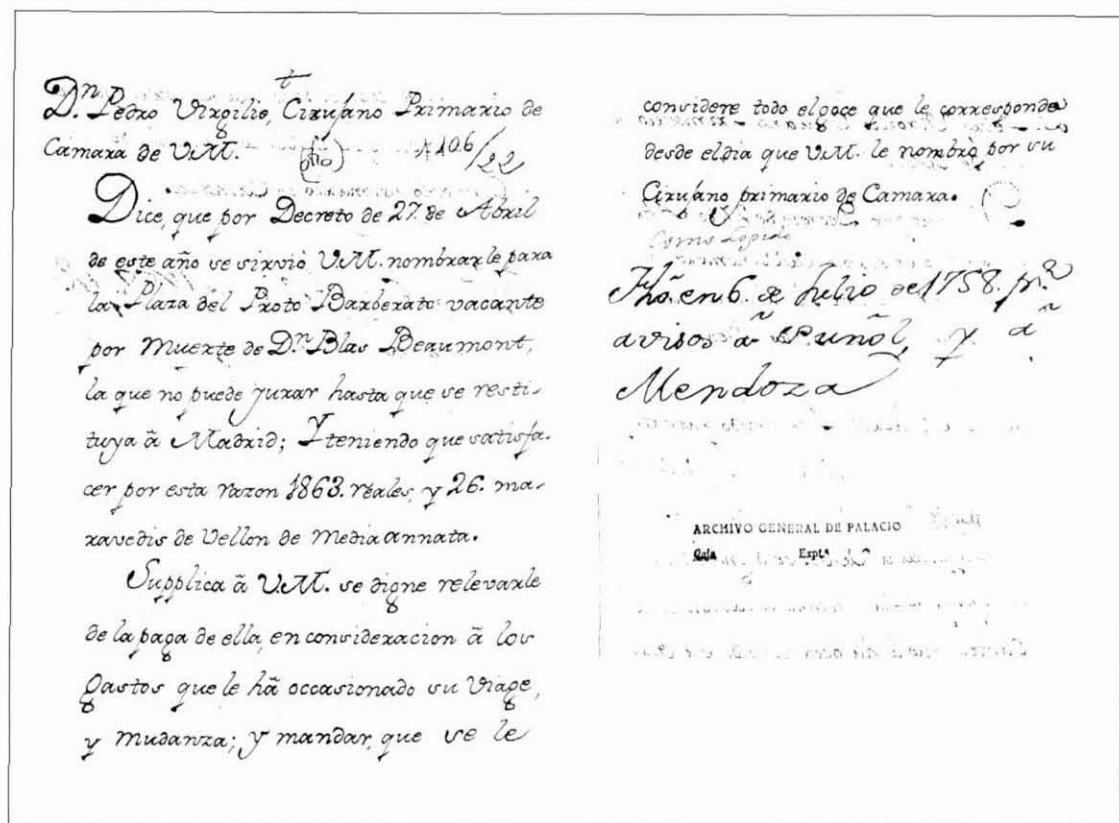 Dn. Pedro Virgilio, Cirujano Primario de
Camara de V.M.
Dice, que por Decreto de 27. de Abril
de este año se sirvió V.M. nombrarle para
la Plaza del Proto Barberato vacante
por Muerte de Dn. Blas Beaumont,
la que no puede jurar hasta que se resti-
tuya ã Madrid; Y teniendo que satisfa-
cer por esta razon 1863. reales, y 26. ma-
ravedis de Vellon de Media annata.
Supplica ã V.M. se digne relevarle
de la paga de ella, en consideracion ã los
gastos que le hã occasionado su Viage,
y Mudanza; y mandar, que se le
considere todo el goce que le corresponde
desde el dia que V.M. le nombrò por su
Cirujano primario de Camara.
Fho. en 6. de Julio de 1758. pa.
avisos ã Puñol, y ã
Mendoza
ARCHIVO GENERAL DE PALACIO
Caja Expte